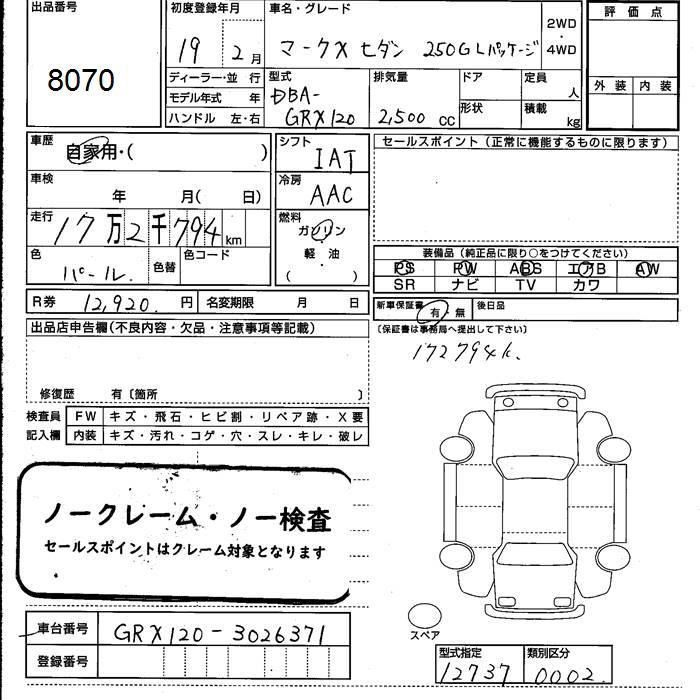 出品番号 初度登録年月 車名・グレード 2WD・4WD 評価点
8070 19年2月 マークX セダン 250G Lパッケージ
ディーラー・並行 型式 排気量 ドア 定員 人 外装 内装
モデル年式 年 DBA-
ハンドル 左・右 GRX120 2,500 cc 形状 積載 kg
車歴 自家用・( ) シフト IAT セールスポイント(正常に機能するものに限ります)
車検 年 月( 日) 冷房 AAC
走行 17万2千794km 燃料 ガソリン
軽・油
( )
色 パール. 色替 色コード
装備品(純正品に限り○をつけてください)
PS PW ABS エアB AW
SR ナビ TV カワ
R券 12,920. 円 名変期限 月 日 新車保証書 有・無 後日品
出品店申告欄(不良内容・欠品・注意事項等記載) (保証書は事務局へ提出して下さい)
172794k.
修復歴 有〔箇所 〕
検査員記入欄 FW キズ・飛石・ヒビ割・リペア跡・X要
内装 キズ・汚れ・コゲ・穴・スレ・キレ・破レ
ノークレーム・ノー検査
セールスポイントはクレーム対象となります
車台番号 GRX120-3026371
登録番号
スペア
型式指定 類別区分
12737 0002